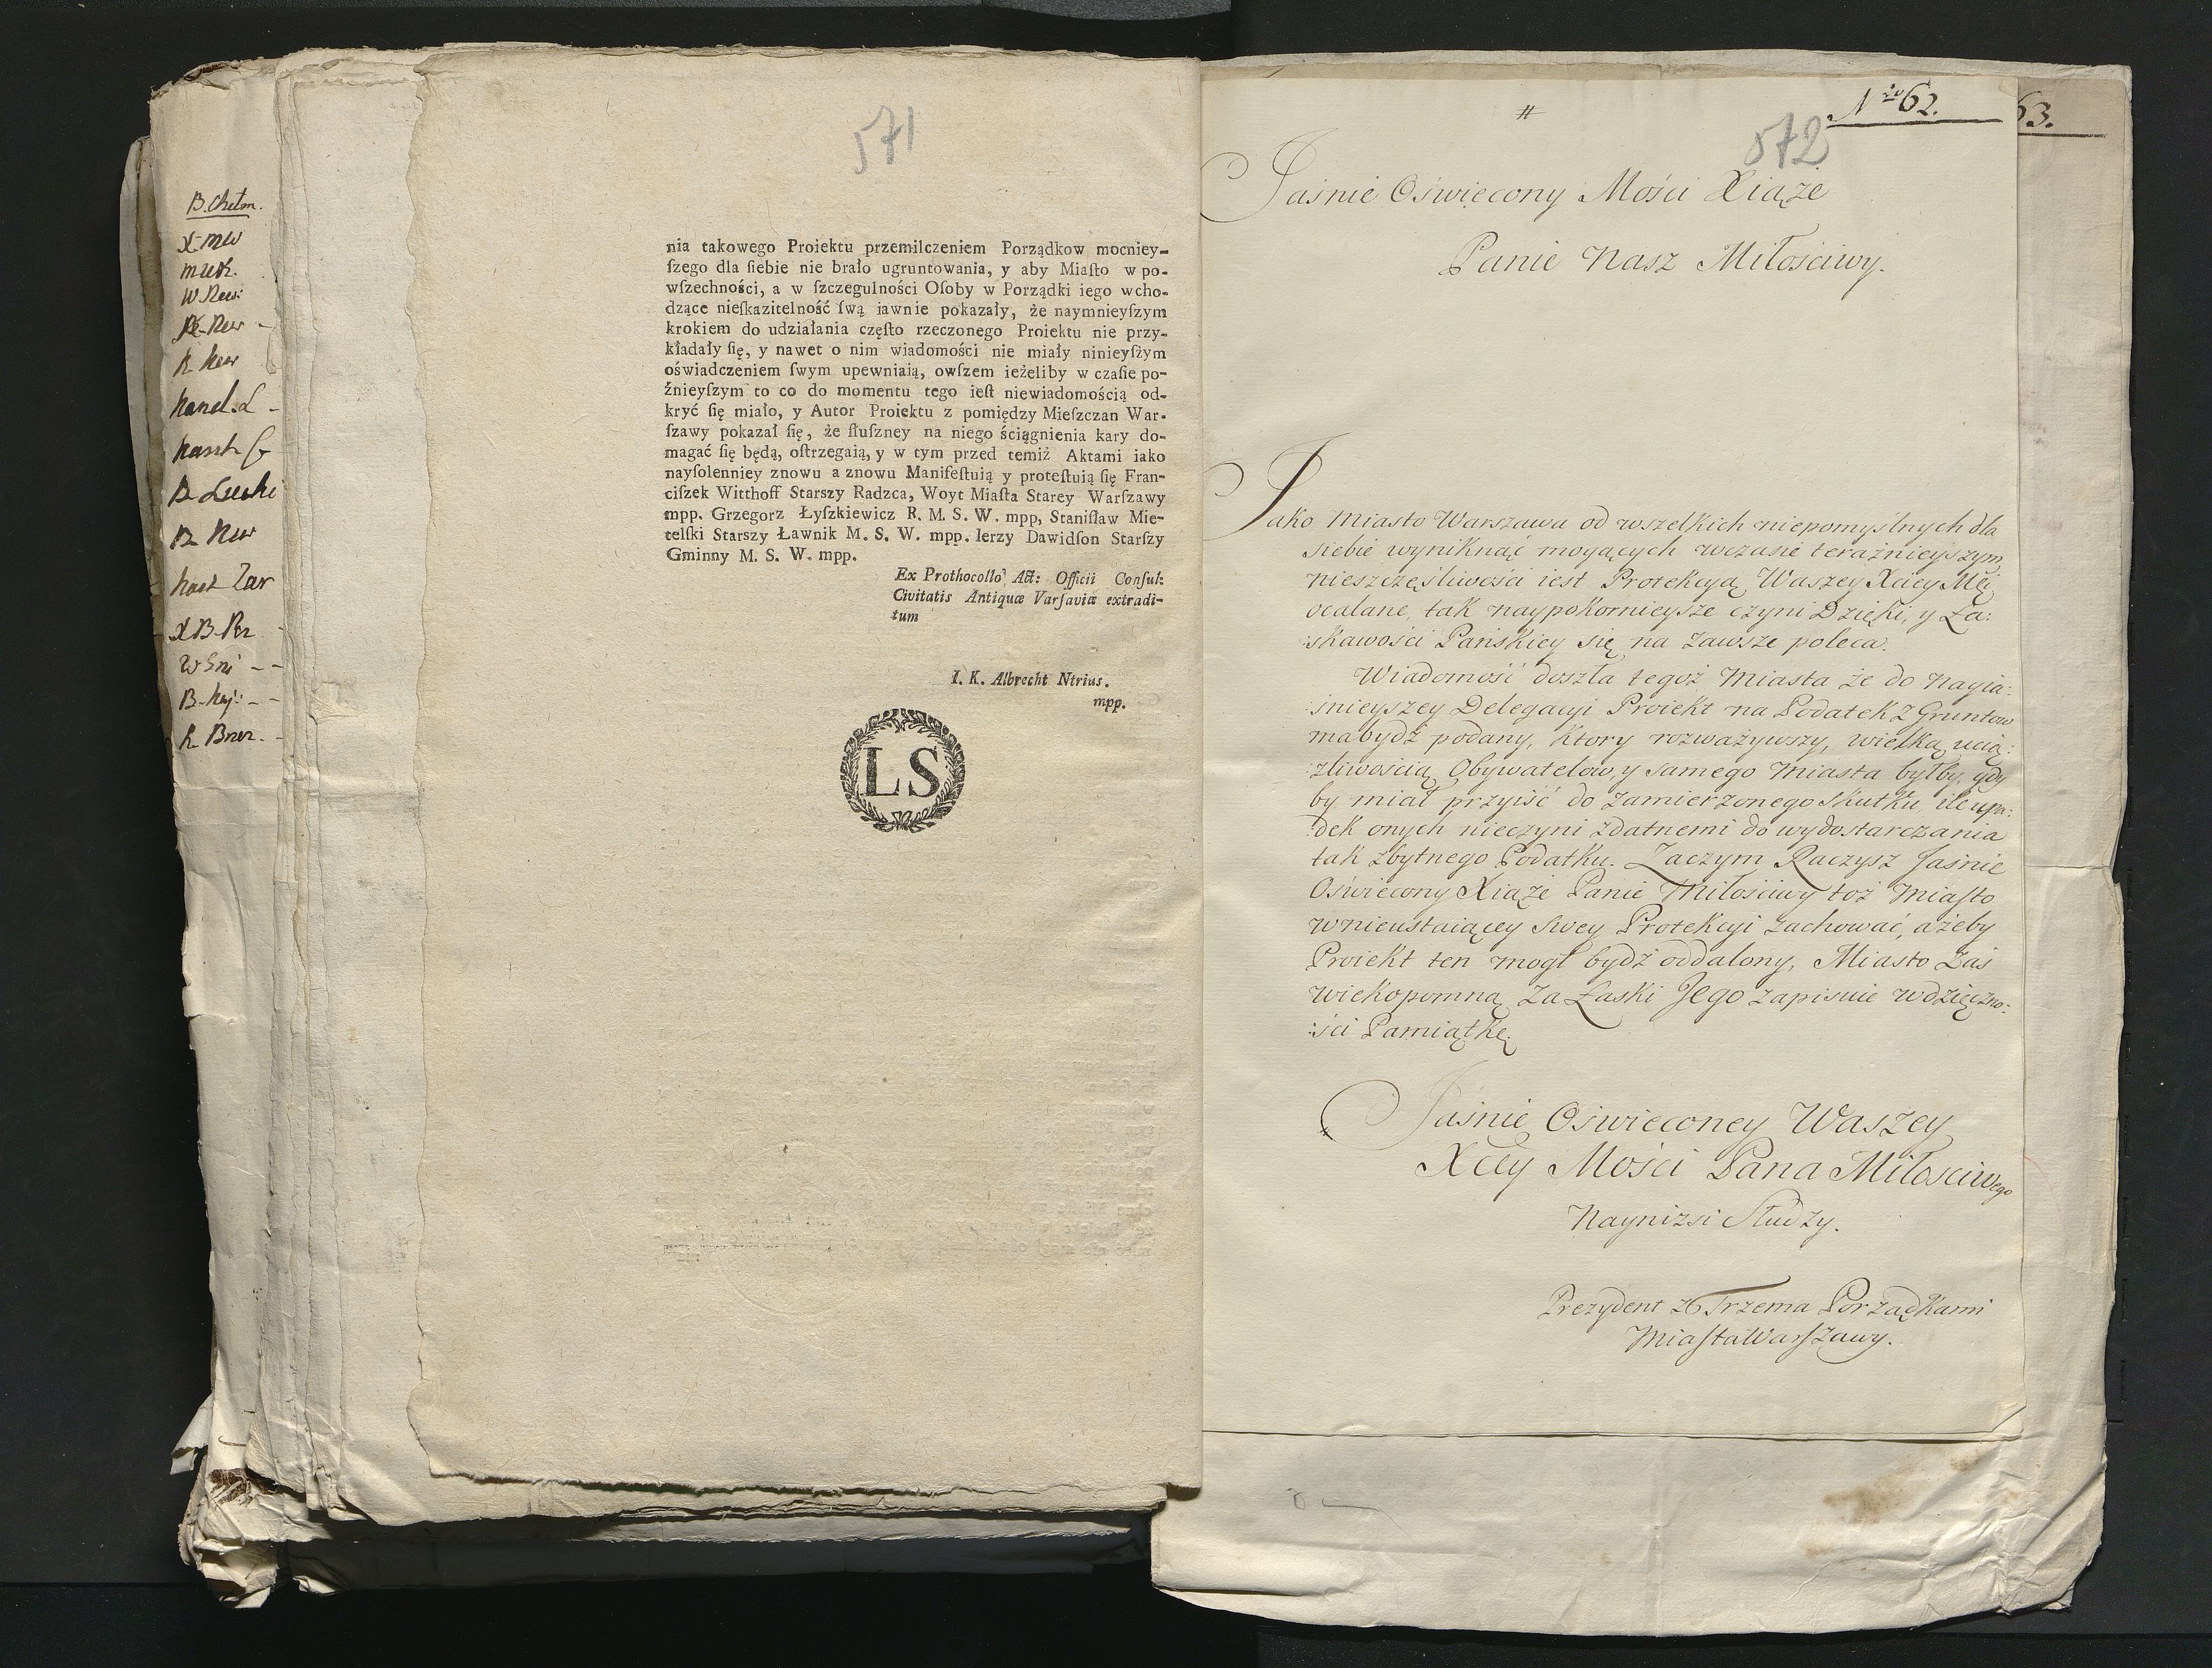 B. Chełm.
X. mw
W New:
R New
Kasztr
B New
X B. Pez
B. Kij:
571
nia takowego Proiektu przemilczeniem Porządkow mocniey-
ſzego dla ſiebie nie brało ugruntowania, y aby Miaſto w po-
wſzechności, a w ſzczegulności Oſoby w Porządki iego wcho-
dzące nieſkazitelność ſwą iawnie pokazały, że naymnieyſzym
krokiem do udziałania częſto rzeczonego Proiektu nie przy-
kładały ſię, y nawet o nim wiadomości nie miały ninieyſżym
oświadczeniem ſwym upewniaią, owſzem ieżeliby w czaſie po-
źnieyſzym to co do momentu tego ieſt niewiadomością od-
kryć ſię miało, y Autor Proiektu z pomiędzy Mieſzczan War-
ſzawy pokazał ſię, że ſłuſzney na niego ściągnienia kary do-
magać ſię będą, oſtrzegaią, y w tym przed temiż Aktami iako
nayſolenniey znowu a znowu Manifeſtuią y proteſtuią ſię Fran-
ciſzek Witthoff Starszy Radzca, Woyt Miaſta Starey Warſzawy
mpp. Grzegorz Łyſzkiewicz R. M. S. W. mpp, Staniſław Mie-
telſki Starszy Ławnik M. S. W. mpp. Ierzy Dawidſon Starſzy
Gminny M. S. W. mpp.
Ex Prothocollo Act: Officii Conſul:
Civitatis Antiquæ Varſaviæ extradi-
tum
I. K. Albrecht Ntrius.
mpp.
LS
#
Nro 62.
63.
572
Jaśnie Oświecony Mości Xiąże
Panie Nasz Miłościwy.
Jako Miasto Warszawa od wszelkich niepomyślnych dla
siebie wyniknąć mogących w czasie teraźnieyszym
nieszczęśliwości iest Protekcyą Waszey Xciey Mci
ocalane, tak naypokornieysze czyni Dzięki, y Ła:
:skawości Pańskiey się na zawsze poleca.
Wiadomość doszła tegoż Miasta że do Nayia:
:śnieyszey Delegacyi Proiekt na Podatek z Gruntow
ma bydź podany, ktory rozważywszy, wielką ucią:
:żliwością Obywatelow, y samego Miasta byłby, gdy
by miał przyiść do zamierzonego skutku, ile upa:
:dek onych nieczyni zdatnemi do wydostarczania
tak zbytnego Podatku. Zaczym Raczysz Jaśnie
Oświecony Xiąże Panie Miłościwy toż Miasto
w nieustaiącey swey Protekcyi zachować, ażeby
Proiekt ten mogł bydź oddalony, Miasto zaś
wiekopomną za Łaski Jego zapisuie wdzięczno:
:ści Pamiątkę.
Jaśnie Oświeconey Waszey
Xcey Mości Pana Miłosciwego
Nayniżsi Słudzy.
Prezydent z Trzema Porządkami
Miasta Warszawy.